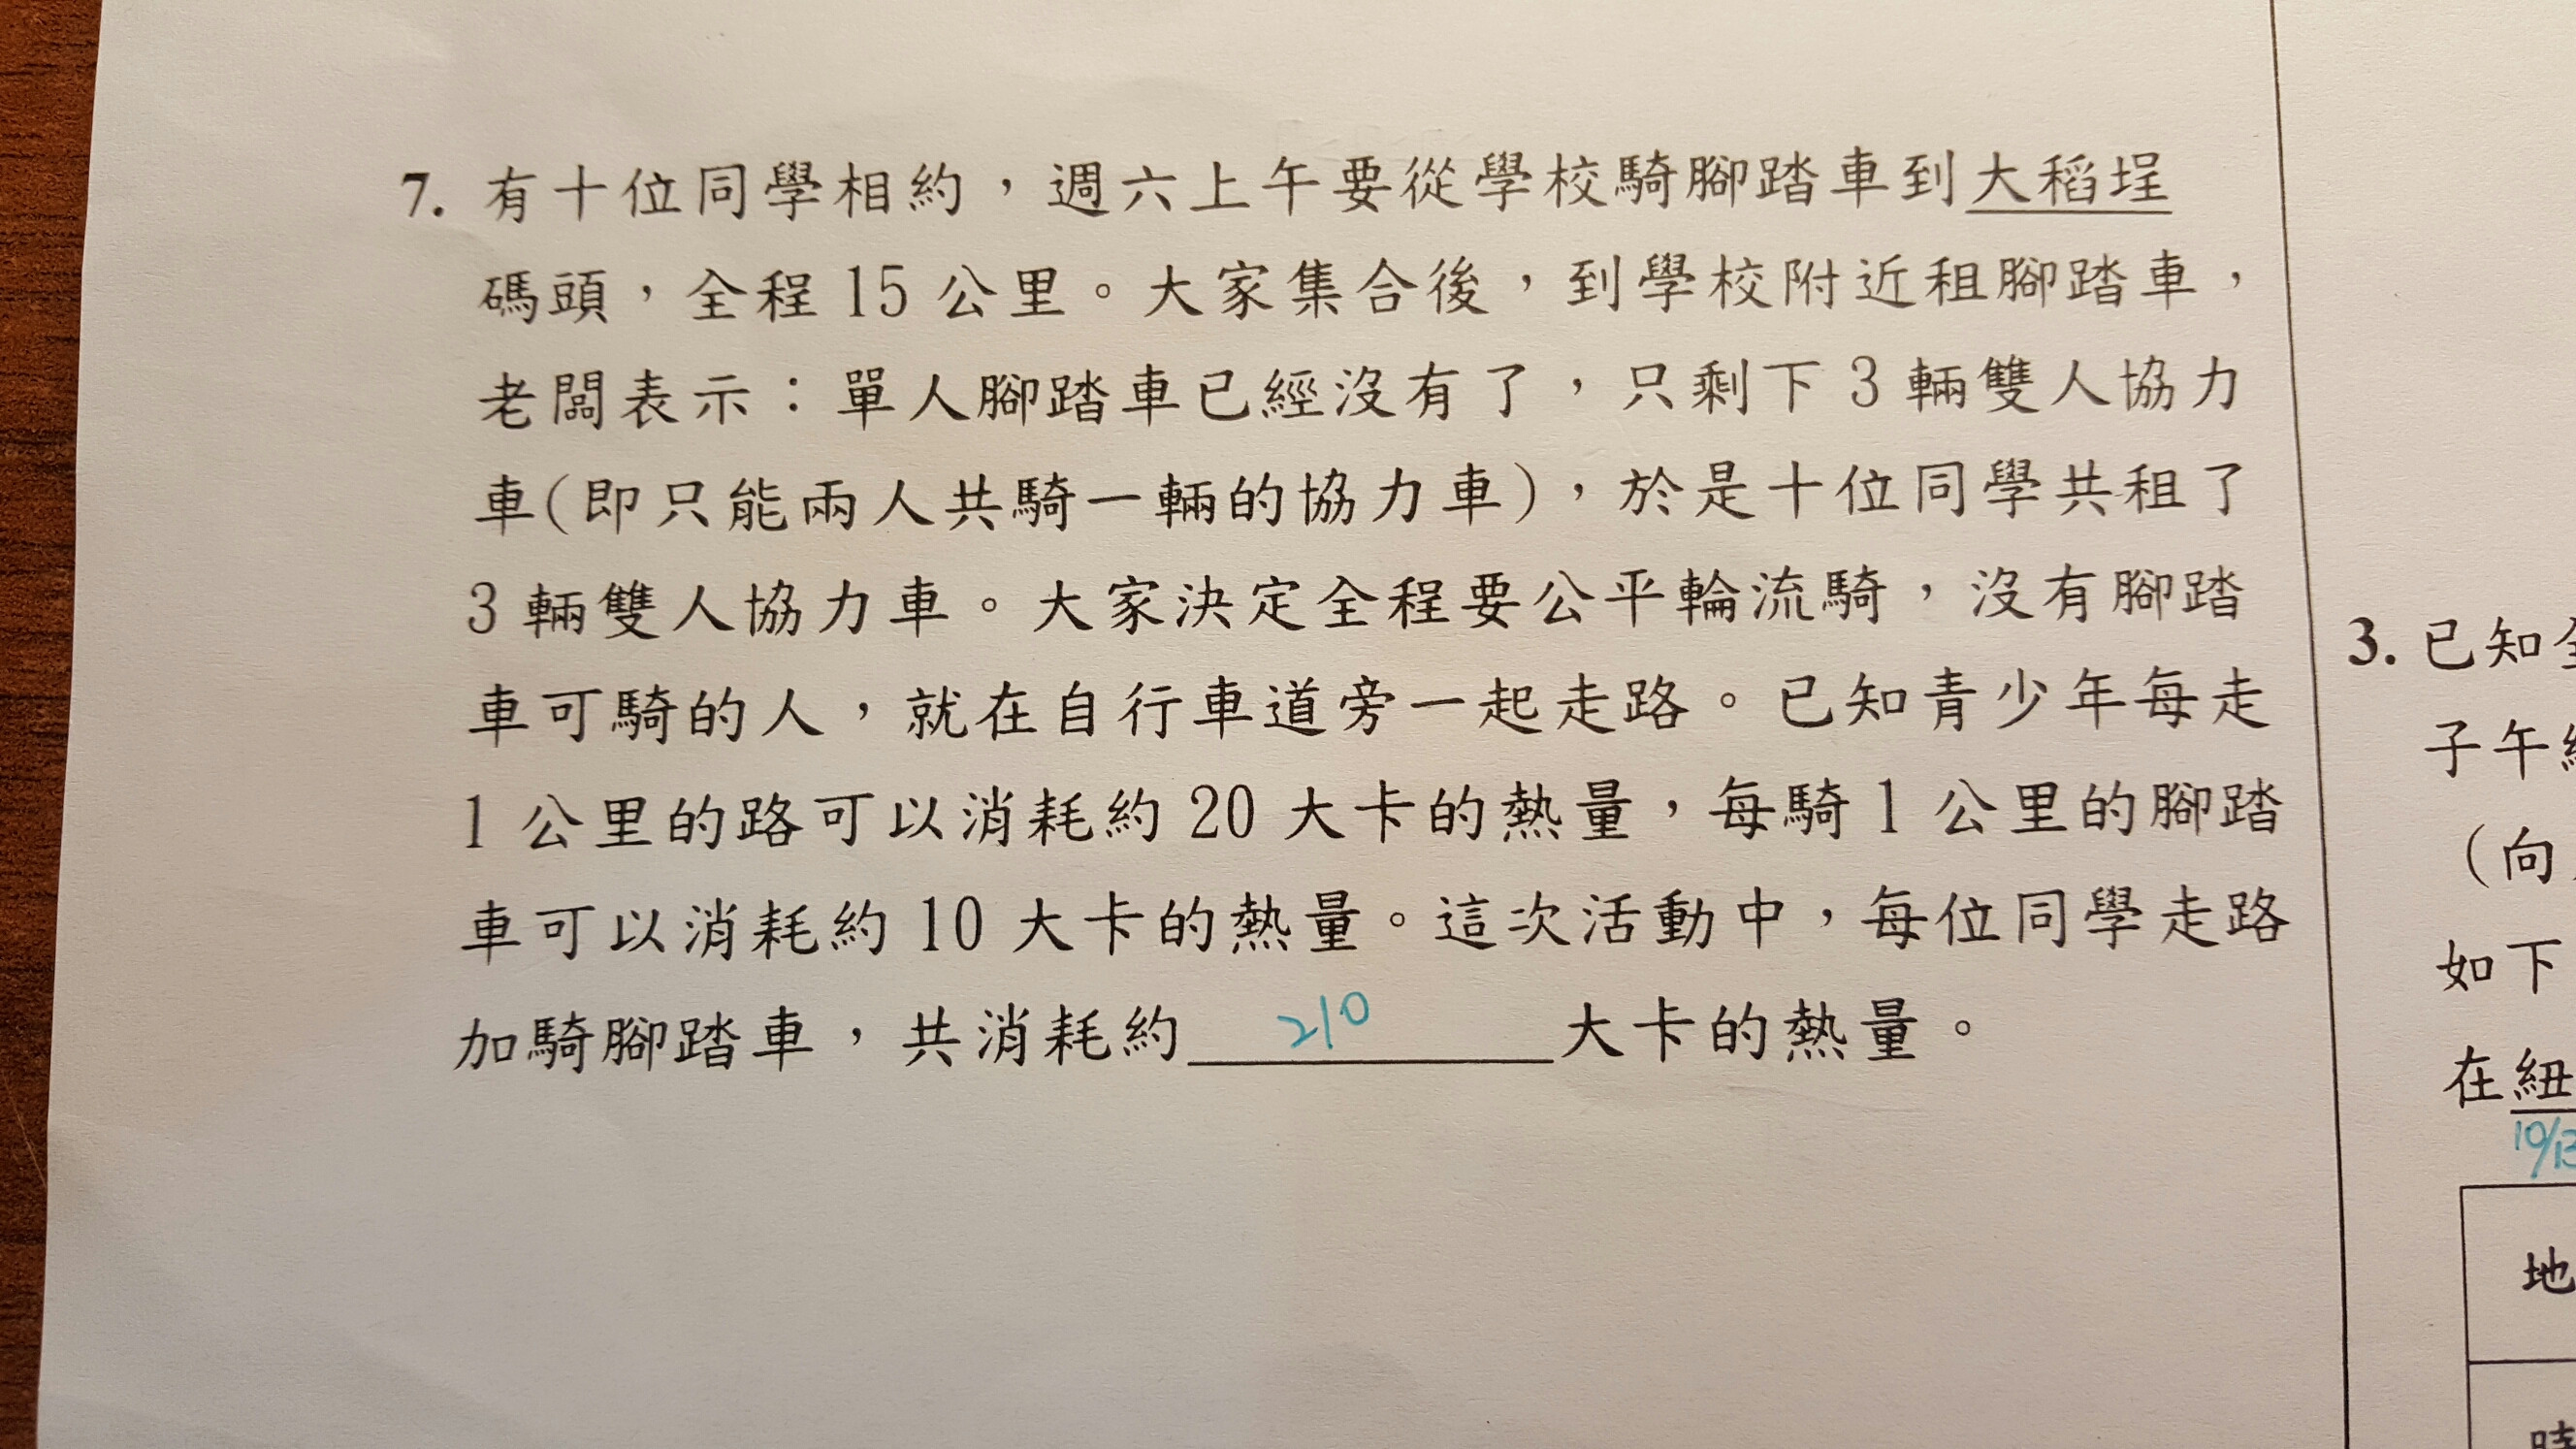 7. 有十位同學相約，週六上午要從學校騎腳踏車到大稻埕
碼頭，全程 15 公里。大家集合後，到學校附近租腳踏車，
老闆表示：單人腳踏車已經沒有了，只剩下 3 輛雙人協力
車(即只能兩人共騎一輛的協力車)，於是十位同學共租了
3 輛雙人協力車。大家決定全程要公平輪流騎，沒有腳踏
車可騎的人，就在自行車道旁一起走路。已知青少年每走
1 公里的路可以消耗約 20 大卡的熱量，每騎 1 公里的腳踏
車可以消耗約 10 大卡的熱量。這次活動中，每位同學走路
加騎腳踏車，共消耗約 210 大卡的熱量。
3. 已知
子午
(向
如下
在紐
10/13
地
時